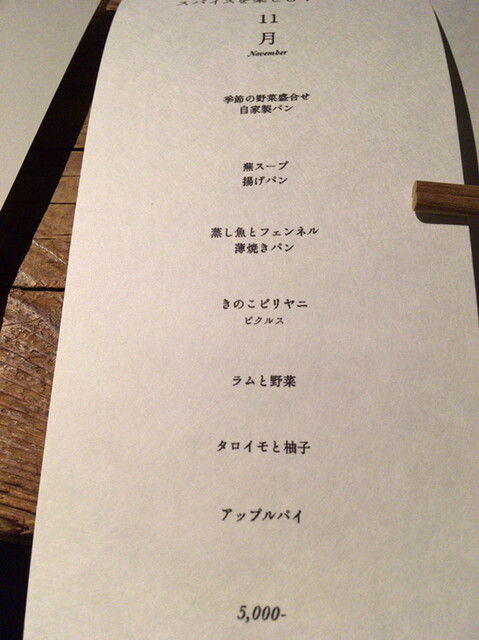 スパイスを楽しむ
11
月
November
季節の野菜盛合せ
自家製パン
蕪スープ
揚げパン
蒸し魚とフェンネル
薄焼きパン
きのこビリヤニ
ピクルス
ラムと野菜
タロイモと柚子
アップルパイ
5,000-